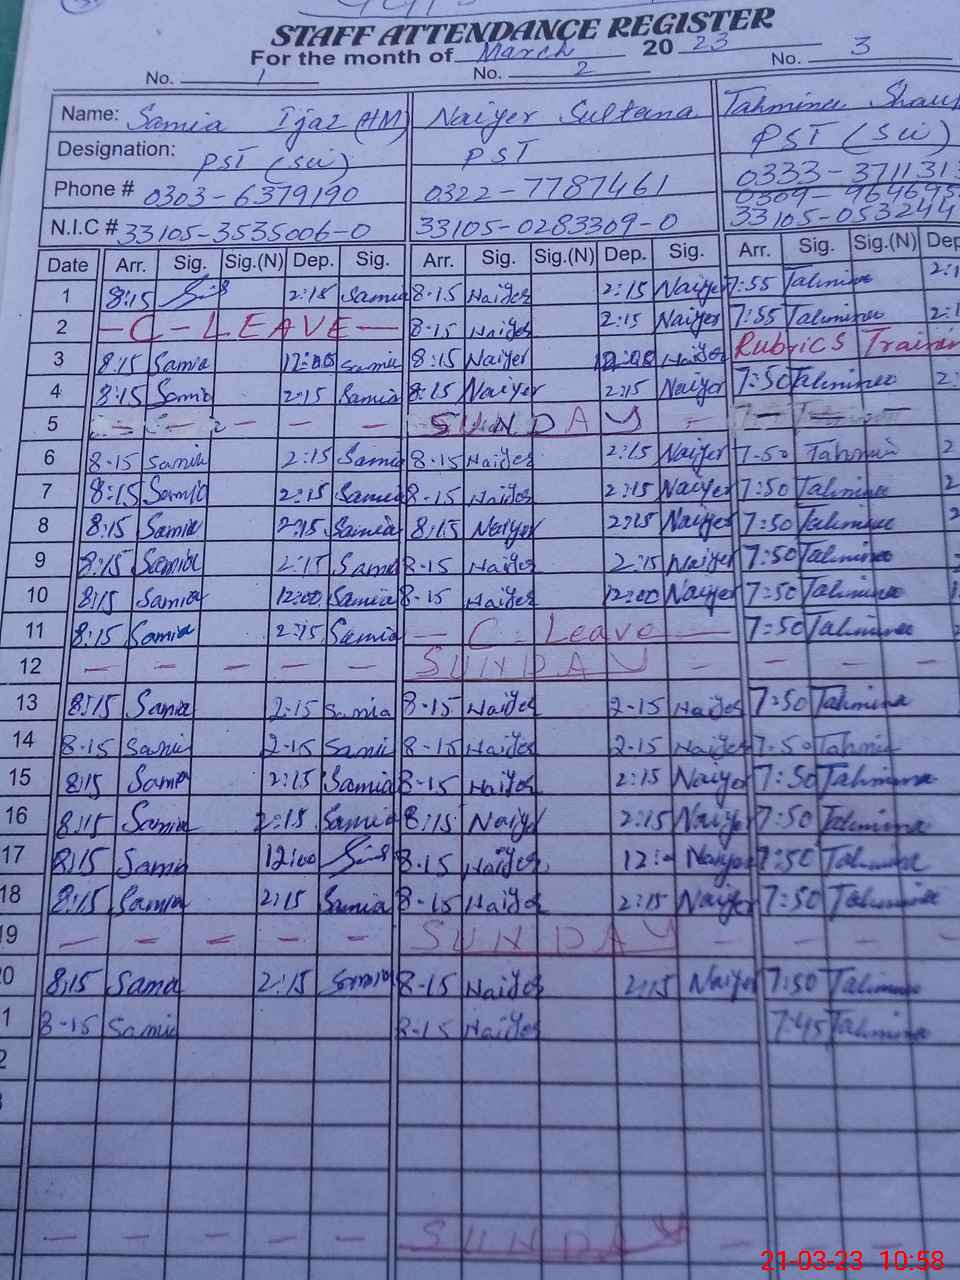 STAFF ATTENDANCE REGISTER
For the month of March 20 23
No. 1 No. 2 No. 3
Name: Samia Ijaz (HM) Naiyer Sultana Tahmina
Designation: PST (Sci) PST PST (Sci)
Phone # 0303-6379190 0322-7787461 0333-3711313
0309-
N.I.C # 33105-3535006-0 33105-0283309-0 33105-053244
Date Arr. Sig. Sig.(N) Dep. Sig. Arr. Sig. Sig.(N) Dep. Sig. Arr. Sig. Sig.(N) Dep
1 8:15 2:15 Samia 8-15 Naiyer 2:15 Naiyer 7:55 Tahmina 2:1
2 - C - LEAVE - 8-15 Naiyer 2:15 Naiyer 7:55 Tahmina 2:1
3 8:15 Samia 12:00 Samia 8:15 Naiyer 12:00 Naiyer Rubrics Trainin
4 8:15 Samia 2:15 Samia 8:15 Naiyer 2:15 Naiyer 7:50 Tahmina 2:
5 - - - - - SUNDAY -
6 8-15 Samia 2:15 Samia 8-15 Naiyer 2:15 Naiyer 7-50 Tahmina 2
7 8:15 Samia 2:15 Samia 8-15 Naiyer 2:15 Naiyer 7:50 Tahmina 2
8 8:15 Samia 2:15 Samia 8:15 Naiyer 2:15 Naiyer 7:50 Tahmina 2
9 8:15 Samia 2:15 Samia 8-15 Naiyer 2:15 Naiyer 7:50 Tahmina
10 8:15 Samia 12:00 Samia 8-15 Naiyer 12:00 Naiyer 7:50 Tahmina
11 8:15 Samia 2:15 Samia - C - Leave - 7:50 Tahmina
12 - - - - - SUNDAY - - - -
13 8:15 Samia 2-15 Samia 8-15 Naiyer 2-15 Naiyer 7:50 Tahmina
14 8-15 Samia 2-15 Samia 8-15 Naiyer 2-15 Naiyer 7-50 Tahmina
15 8:15 Samia 2:15 Samia 8-15 Naiyer 2:15 Naiyer 7:50 Tahmina
16 8:15 Samia 2:15 Samia 8:15 Naiyer 2:15 Naiyer 7:50 Tahmina
17 8:15 Samia 12:00 8-15 Naiyer 12: Naiyer 7:50 Tahmina
18 8:15 Samia 2:15 Samia 8-15 Naiyer 2:15 Naiyer 7:50 Tahmina
19 - - - - - SUNDAY - - - -
0 8:15 Sama 2:15 Samia 8-15 Naiyer 2:15 Naiyer 7:50 Tahmina
1 8-15 Samia 8-15 Naiyer 7:45 Tahmina
2
- - - - - SUNDAY - - -
21-03-23 10:58